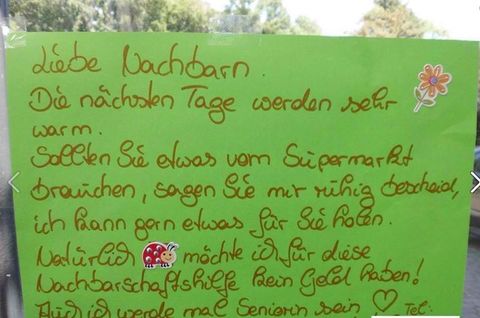 Liebe Nachbarn.
Die nächsten Tage werden sehr
warm.
Sollten Sie etwas vom Supermarkt
brauchen, sagen Sie mir ruhig bescheid,
ich kann gern etwas für Sie holen.
Natürlich möchte ich für diese
Nachbarschaftshilfe kein Geld haben!
Auch ich werde mal Seniorin sein ♡ Tel: